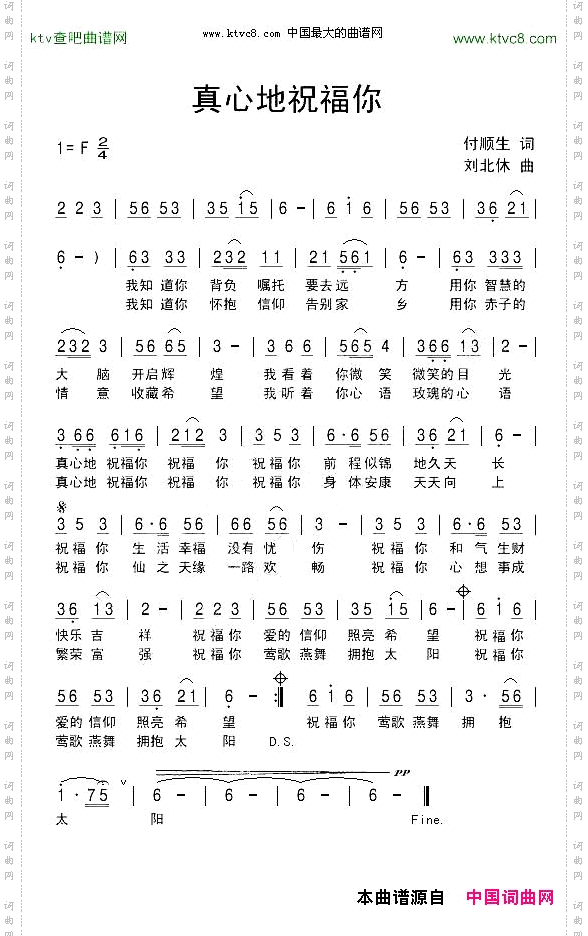 ktv查吧曲谱网
www.ktvc8.com 中国最大的曲谱网
www.ktvc8.com
真心地祝福你
1=F 2/4
付顺生 词
刘北休 曲
2 2 3 | 56 53 | 35 15 | 6 - | 6 1 6 | 56 53 | 36 21 |
6 - ) | 63 33 | 232 11 | 21 561 | 6 - | 63 333 |
我知 道你 背负 嘱托 要去 远 方 用你 智慧的
我知 道你 怀抱 信仰 告别 家 乡 用你 赤子的
232 3 | 56 65 | 3 - | 3 6 6 | 565 4 | 366 13 | 2 - |
大 脑 开启 辉 煌 我 看 着 你微 笑 微笑的 目 光
情 意 收藏 希 望 我 听 着 你心 语 玫瑰的 心 语
3 66 616 | 212 3 | 3 5 3 | 6·6 56 | 36 21 | 6 - |
真心地 祝福你 祝福 你 祝福你 前 程似锦 地久 天 长
真心地 祝福你 祝福 你 祝福你 身 体安康 天天 向 上
3 5 3 | 6·6 56 | 66 56 | 3 - | 3 5 3 | 6·6 53 |
祝福你 生 活 幸福 没有 忧 伤 祝福你 和 气 生财
祝福你 仙 之 天缘 一路 欢 畅 祝福你 心 想 事成
36 13 | 2 - | 2 2 3 | 56 53 | 35 15 | 6 - | 6 1 6 |
快乐 吉 祥 祝福你 爱的 信仰 照亮 希 望 祝福你
繁荣 富 强 祝福你 莺歌 燕舞 拥抱 太 阳 祝福你
56 53 | 36 21 | 6 - :| 6 1 6 | 56 53 | 3· 56 |
爱的 信仰 照亮 希 望 祝福你 莺歌 燕舞 拥 抱
莺歌 燕舞 拥抱 太 阳 D.S.
1· 75 | 6 - | 6 - | 6 - | 6 - ‖
pp
太 阳 Fine.
本曲谱源自 中国词曲网